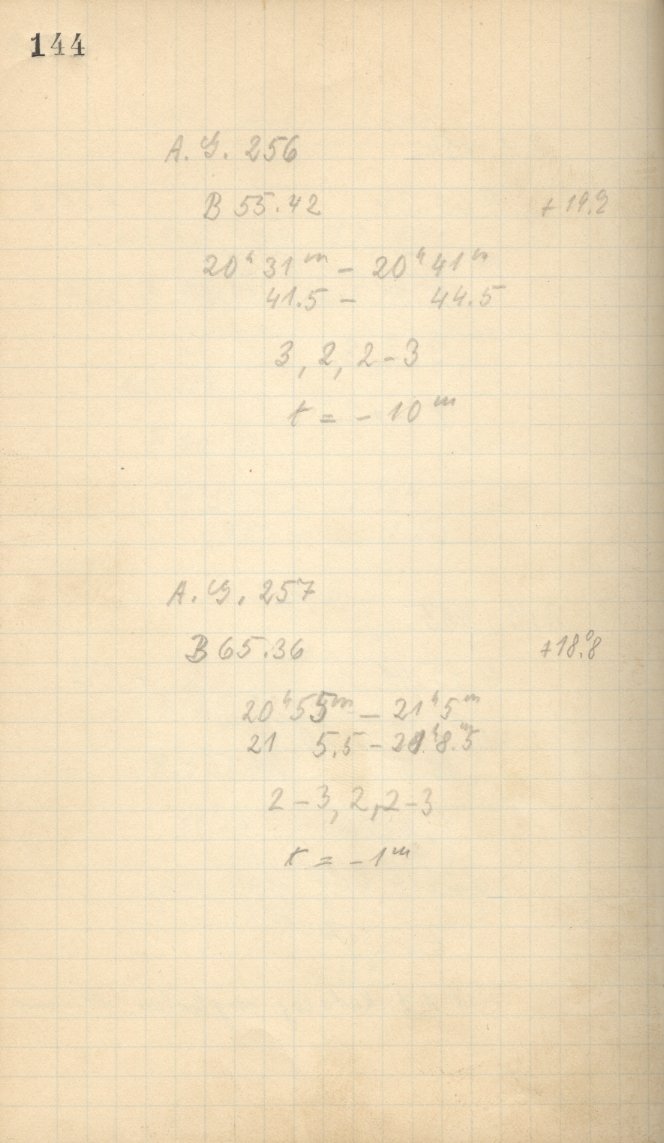 144
A. G. 256
B 55.42 +19.2
20ʰ 31ᵐ – 20ʰ 41ᵐ
41.5 – 44.5
3, 2, 2-3
t = - 10ᵐ
A. G. 257
B 65.36 +18.°8
20ʰ 55ᵐ – 21ʰ 5ᵐ
21 5.5 – 21ʰ 8.ᵐ5
2-3, 2, 2-3
t = - 1ᵐ